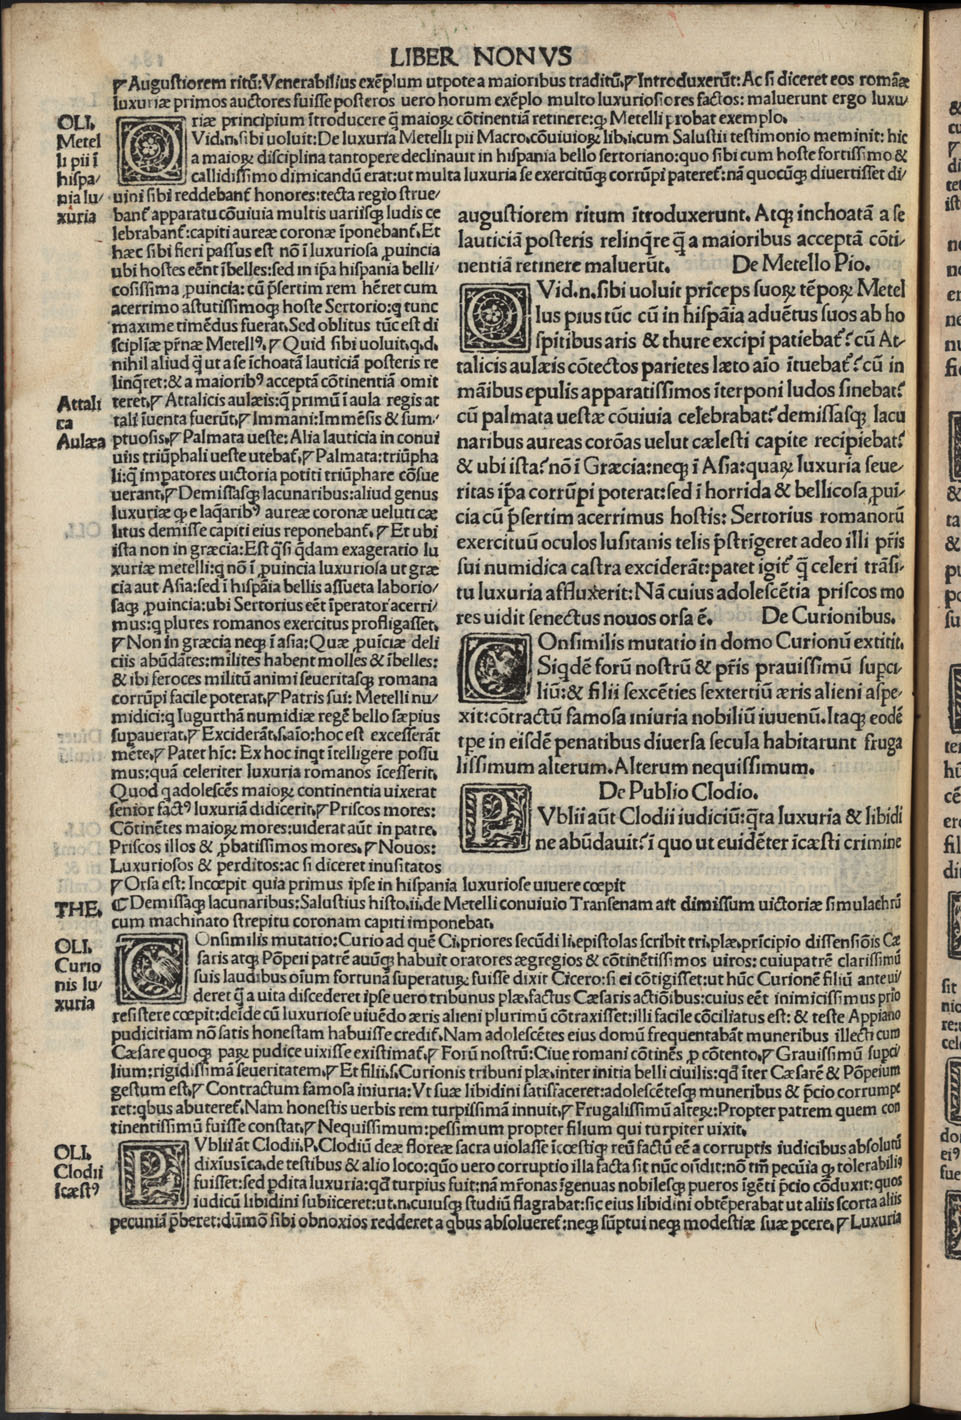 LIBER NONVS
¶ Augustiorem ritū: Venerabilius exēplum utpote a maioribus traditū, ¶ Introduxerūt: Ac si diceret eos romāæ
luxuriæ primos auctores fuisse posteros uero horum exēplo multo luxuriosiores factos: maluerunt ergo luxu/
riæ principium ītroducere q̄ maioꝝ cōtinentiā retinere: ꝙ Metelli ꝓbat exemplo.
OLI.
Metel
li pii ī
hispa/
nia lu/
xuria
QVid.n.sibi uoluit: De luxuria Metelli pii Macro.cōuiuioꝝ lib.i.cum Salustii testimonio meminit: hic
a maioꝝ disciplina tantopere declinauit in hispania bello sertoriano: quo sibi cum hoste fortissimo &
callidissimo dimicandū erat: ut multa luxuria se exercitūqꝫ corrūpi pateret᷑: nā quocūqꝫ diuertisset di/
uini sibi reddebant᷑ honores: tecta regio strue/
bant᷑ apparatu cōuiuia multis uariisqꝫ ludis ce
lebrabant᷑: capiti aureæ coronæ īponebant᷑. Et
hæc sibi fieri passus est nō ī luxuriosa ꝓuincia
ubi hostes eēnt ībelles: sed in ip̄a hispania belli/
cosissima ꝓuincia: cū p̄sertim rem hēret cum
acerrimo astutissimoqꝫ hoste Sertorio: q tunc
maxime timēdus fuerat. Sed oblitus tūc est di
sciplīæ pr̄næ Metellꝰ, ¶ Quid sibi uoluit, q.d.
nihil aliud q̄ ut a se īchoatā lauticiā posteris re
linq̄ret: & a maioribꝰ acceptā cōtinentiā omit
Attali
ca
Aulæa
teret, ¶ Attalicis aulæis: q̄ primū ī aula regis at
tali īuenta fuerūt, ¶ Immani: Immēsis & sum/
ptuosis, ¶ Palmata ueste: Alia lauticia in conui
uiis triūphali ueste utebat᷑, ¶ Palmata: triūpha
li: q̄ imꝑatores uictoria potiti triūphare cōsue
uerant, ¶ Demissasqꝫ lacunaribus: aliud genus
luxuriæ ꝙ e laq̄aribꝰ aureæ coronæ ueluti cæ
litus demisse capiti eius reponebant᷑, ¶ Et ubi
ista non in græcia: Est q̄si q̄dam exageratio lu
xuriæ metelli: q nō ī ꝓuincia luxuriosa ut græ
cia aut Asia: sed ī hispāia bellis assueta laborio/
saqꝫ ꝓuincia: ubi Sertorius eēt īperator acerri/
mus: q plures romanos exercitus profligasset.
¶ Non in græcia neqꝫ ī asia: Quæ ꝓuīciæ deli
ciis abūdātes: milites habent molles & ībelles:
& ibi feroces militū animi seueritasqꝫ romana
corrūpi facile poterat, ¶ Patris sui: Metelli nu/
midici: q Iugurthā numidiæ regē bello sæpius
suꝑauerat, ¶ Exciderāt.s.aīo: hoc est excesserāt
mēte, ¶ Patet hīc: Ex hoc inqt ītelligere possū
mus: quā celeriter luxuria romanos īcesserit.
Quod q adolescēs maioꝝ continentia uixerat
senior factꝰ luxuriā didicerit, ¶ Priscos mores:
Cōtinētes maioꝝ mores: uiderat aūt in patre.
Priscos illos & ꝓbatissimos mores, ¶ Nouos:
Luxuriosos & perditos: ac si diceret inusitatos
¶ Orsa est: Incœpit quia primus ipse in hispania luxuriose uiuere cœpit
augustiorem ritum ītroduxerunt. Atqꝫ inchoatā a se
lauticiā posteris relinq̄re q̄ a maioribus acceptā cōti/
nentiā retinere maluerūt. De Metello Pio.
QVid.n.sibi uoluit prīceps suoꝝ tēpoꝝ Metel
lus pius tūc cū in hispāia aduētus suos ab ho
spitibus aris & thure excipi patiebat᷑? cū At/
talicis aulæis cōtectos parietes læto aīo ītuebat᷑? cū in
māibus epulis apparatissimos īterponi ludos sinebat?
cū palmata uestæ cōuiuia celebrabat? demissasqꝫ lacu
naribus aureas corōas uelut cælesti capite recipiebat?
& ubi ista? nō ī Græcia: neqꝫ ī Asia: quaꝝ luxuria seue/
ritas ip̄a corrūpi poterat: sed ī horrida & bellicosa ꝓui/
cia cū p̄sertim acerrimus hostis: Sertorius romanorū
exercituū oculos lusitanis telis p̄strīgeret adeo illi pr̄is
sui numidica castra exciderāt: patet igit᷑ q̄ celeri trāsi/
tu luxuria affluxerit: Nā cuius adolescētia priscos mo
res uidit senectus nouos orsa ē. De Curionibus.
COnsimilis mutatio in domo Curionū extitit.
Siqdē forū nostrū & pr̄is prauissimū suꝑci/
liū: & filii sexcēties sextertiū æris alieni aspe/
xit: cōtractū famosa iniuria nobiliū iuuenū. Itaqꝫ eodē
tp̄e in eisdē penatibus diuersa secula habitarunt fruga
lissimum alterum. Alterum nequissimum.
De Publio Clodio.
PVblii aūt Clodii iudiciū: q̄ta luxuria & libidi
ne abūdauit? ī quo ut euidēter īcæsti crimine
THE.
¶ Demissaqꝫ lacunaribus: Salustius histo.ii.de Metelli conuiuio Transenam ait dimissum uictoriæ simulachrū
cum machinato strepitu coronam capiti imponebat.
OLI.
Curio
nis lu/
xuria
COnsimilis mutatio: Curio ad quē Ci.priores secūdi li.epistolas scribit tri.plæ.prīcipio dissensiōis Cæ
saris atqꝫ Pōpeii patrē auūqꝫ habuit oratores ægregios & cōtinētissimos uiros: cuiupatrē clarissimū
suis laudibus oīum fortunā superaturqꝫ fuisse dixit Cicero: si ei cōtigisset: ut hūc Curionē filiū ante ui/
deret q̄ a uita discederet ipse uero tribunus plæ.factus Cæsaris actiōibus: cuius eēt inimicissimus prio
resistere cœpit: deīde cū luxuriose uiuēdo æris alieni plurimū cōtraxisset: illi facile cōciliatus est: & teste Appiano
pudicitiam nō satis honestam habuisse credit᷑. Nam adolescētes eius domū frequentabāt muneribus illecti cum
Cæsare quoqꝫ paꝝ pudice uixisse existimat᷑, ¶ Forū nostrū: Ciue romani cōtinēs ꝓ cōtento, ¶ Grauissimū suꝑci/
lium: rigidissimā seueritatem, ¶ Et filii.s.Curionis tribuni plæ.inter initia belli ciuilis: qd̄ īter Cæsarē & Pōpeium
gestum est, ¶ Contractum famosa iniuria: Vt suæ libidini satisfaceret: adolescētesqꝫ muneribus & p̄cio corrumpe
ret: qbus abuteret᷑. Nam honestis uerbis rem turpissimā innuit, ¶ Frugalissimū alteꝝ: Propter patrem quem con
tinentissimū fuisse constat, ¶ Nequissimum: pessimum propter filium qui turpiter uixit.
OLI.
Clodii
īcæstꝰ
PVblii āt Clodii.P.Clodiū deæ floreæ sacra uiolasse īcœstiqꝫ reū factū cē a corruptis iudicibus absolutū
dixīus īca.de testibus & alio loco: qūo uero corruptio illa facta sit nūc oñdit: nō tm̄ pecūia ꝙ tolerabiliꝰ
fuisset: sed ꝑdita luxuria: qd̄ turpius fuit: nā mr̄onas īgenuas nobilesqꝫ pueros īgēti p̄cio cōduxit: quos
iudicū libidini subiiceret: ut.n.cuiusqꝫ studiū flagrabat: sic eius libidini obtēperabat ut aliis scorta aliis
pecuniā p̄beret: dūmō sibi obnoxios redderet a qbus absolueret᷑: neqꝫ sūptui neqꝫ modestiæ suæ ꝑcere, ¶ Luxuria